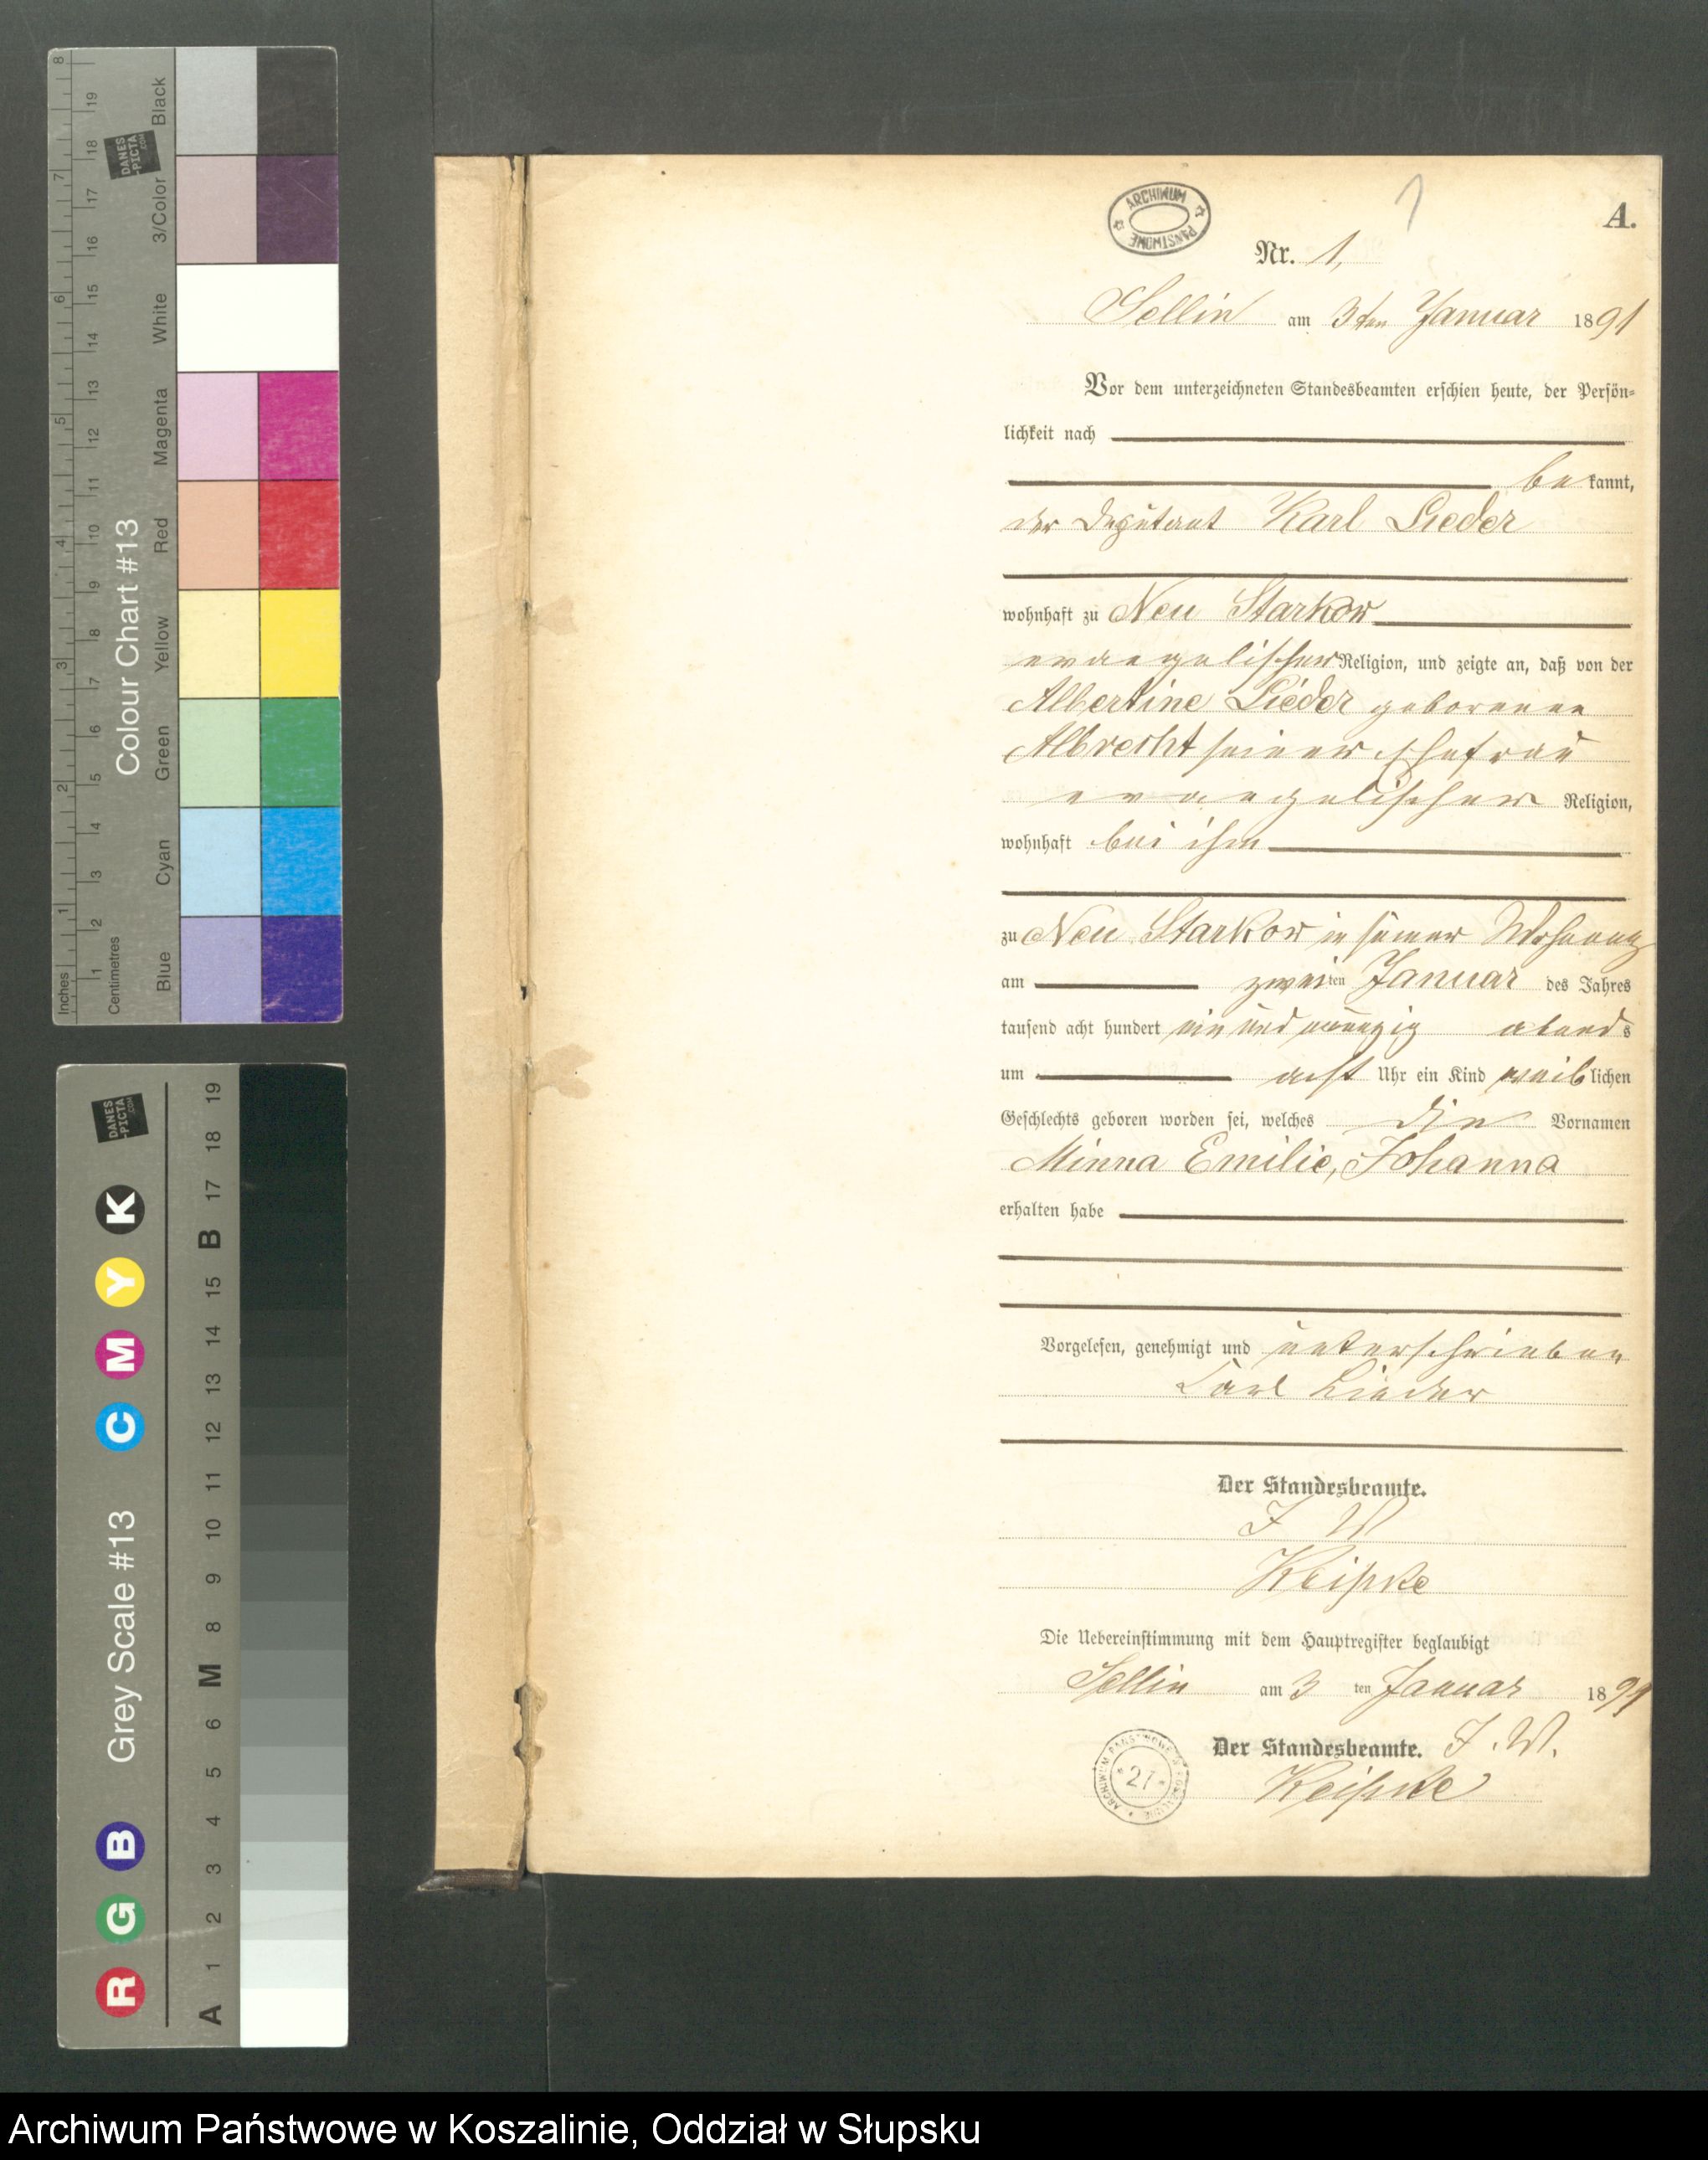 A.
1
ARCHIWUM PAŃSTWOWE
Nr. 1,
Sellin am 3ten Januar 1891
Vor dem unterzeichneten Standesbeamten erschien heute, der Persön-
lichkeit nach
bekannt,
der Deputant Karl Lieder
wohnhaft zu Neu Starkow
evangelischer Religion, und zeigte an, daß von der
Albertine Lieder geborenen
Albrecht seiner Ehefrau
evangelischer Religion,
wohnhaft bei ihm
zu Neu Starkow in seiner Wohnung
am zweiten Januar des Jahres
tausend acht hundert ein und neunzig abends
um acht Uhr ein Kind weiblichen
Geschlechts geboren worden sei, welches die Vornamen
Minna Emilie, Johanna
erhalten habe
Vorgelesen, genehmigt und unterschrieben
Carl Lieder
Der Standesbeamte.
J W
Die Uebereinstimmung mit dem Hauptregister beglaubigt
Sellin am 3 ten Januar 1891
Der Standesbeamte. J. W.
ARCHIWUM PAŃSTWOWE
27
Inches
Centimetres
1 2 3 4 5 6 7 8
1 2 3 4 5 6 7 8 9 10 11 12 13 14 15 16 17 18 19
Colour Chart #13
Blue Cyan Green Yellow Red Magenta White 3/Color Black
DANES
-PICTA
.COM
Grey Scale #13
R G B C M Y K
A 1 2 3 4 5 6 M 8 9 10 11 12 13 14 15 B 17 18 19
DANES
-PICTA
.COM
Archiwum Państwowe w Koszalinie, Oddział w Słupsku